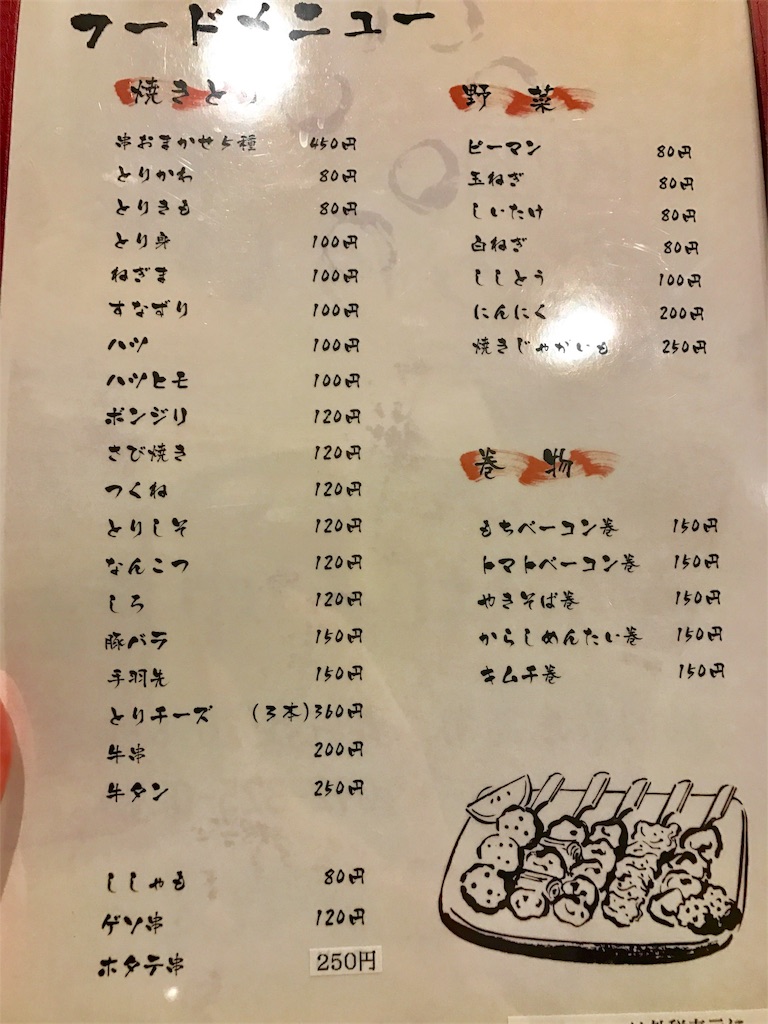 フードメニュー
焼きとり
串おまかせ5種 450円
とりかわ 80円
とりきも 80円
とり身 100円
ねぎま 100円
すなずり 100円
ハツ 100円
ハツヒモ 100円
ボンジリ 120円
さび焼き 120円
つくね 120円
とりしそ 120円
なんこつ 120円
しろ 120円
豚バラ 150円
手羽先 150円
とりチーズ (3本)360円
牛串 200円
牛タン 250円
ししゃも 80円
ゲソ串 120円
ホタテ串 250円
野菜
ピーマン 80円
玉ねぎ 80円
しいたけ 80円
白ねぎ 80円
ししとう 100円
にんにく 200円
焼きじゃがいも 250円
巻物
もちベーコン巻 150円
トマトベーコン巻 150円
やきそば巻 150円
からしめんたい巻 150円
キムチ巻 150円